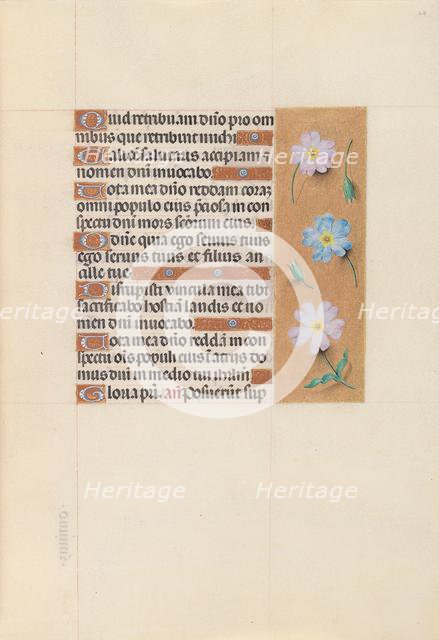 Quid retribuam dño pro om
nibus que retribuit michi
Calicē salutaris accipiam et
nomen dnī invocabo
Vota mea dnō reddam coraȝ
omni populo eius p̄ciosa in con
spectu dnī mors sc̄orum eius
O dn̄e quia ego servus tuus
ego servus tuus et filius an
cille tue
Disrupisti vincula mea tibi
sacrificabo hostiā laudis et no
men dnī invocabo
Vota mea dnō reddā in con
spectu oīs populi eius ī atriis do
mus dnī in medio tui ihrlm̄
Gloria pr̄i an̄ Posuerūt sup
Heritage Heritage
Heritage Heritage Heritage
Heritage Heritage